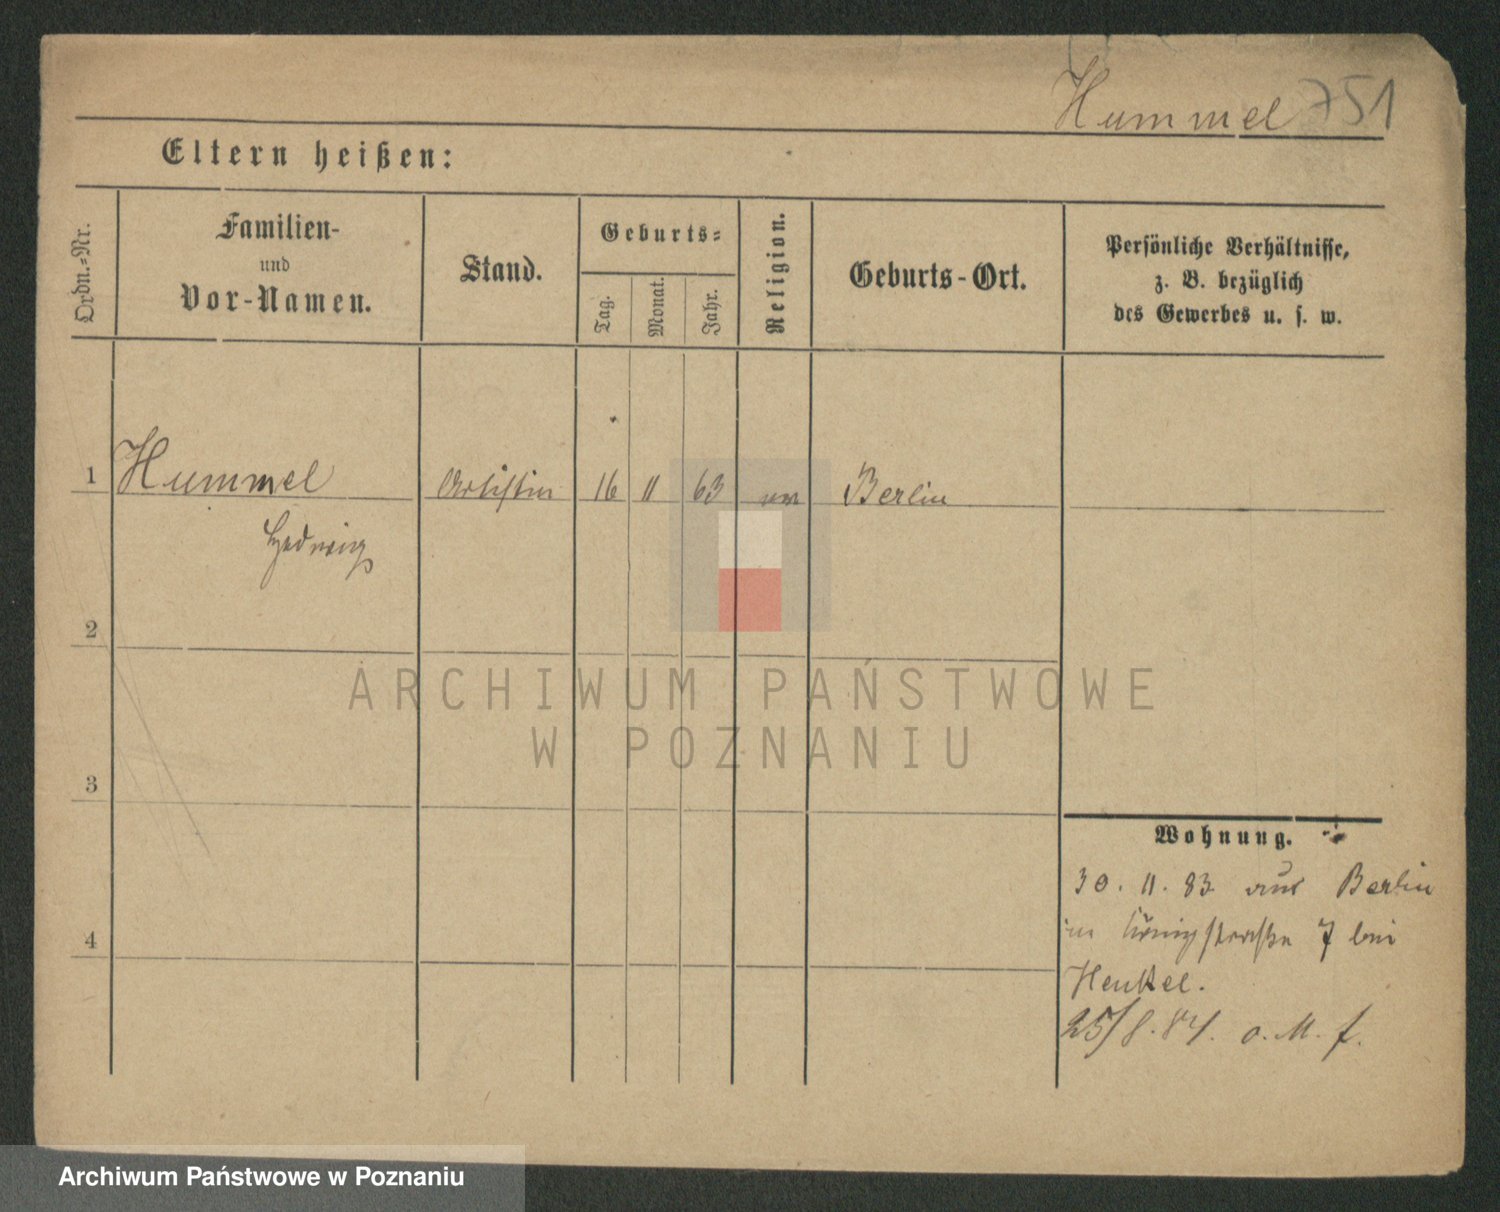 Hummel 751
Eltern heißen:
Ordn.-Nr.
Familien-
und
Vor-Namen.
Stand.
Geburts-
Tag.
Monat.
Jahr.
Religion.
Geburts-Ort.
Persönliche Verhältnisse,
z. B. bezüglich
des Gewerbes u. s. w.
1 Hummel Artistin 16 11 63 Berlin
Hedwig
2
3
4
Wohnung.
30. 11. 83 aus Berlin
in Königstraße 7 bei
Henkel.
25/8. 84. o. M. f.
ARCHIWUM PAŃSTWOWE
W POZNANIU
Archiwum Państwowe w Poznaniu